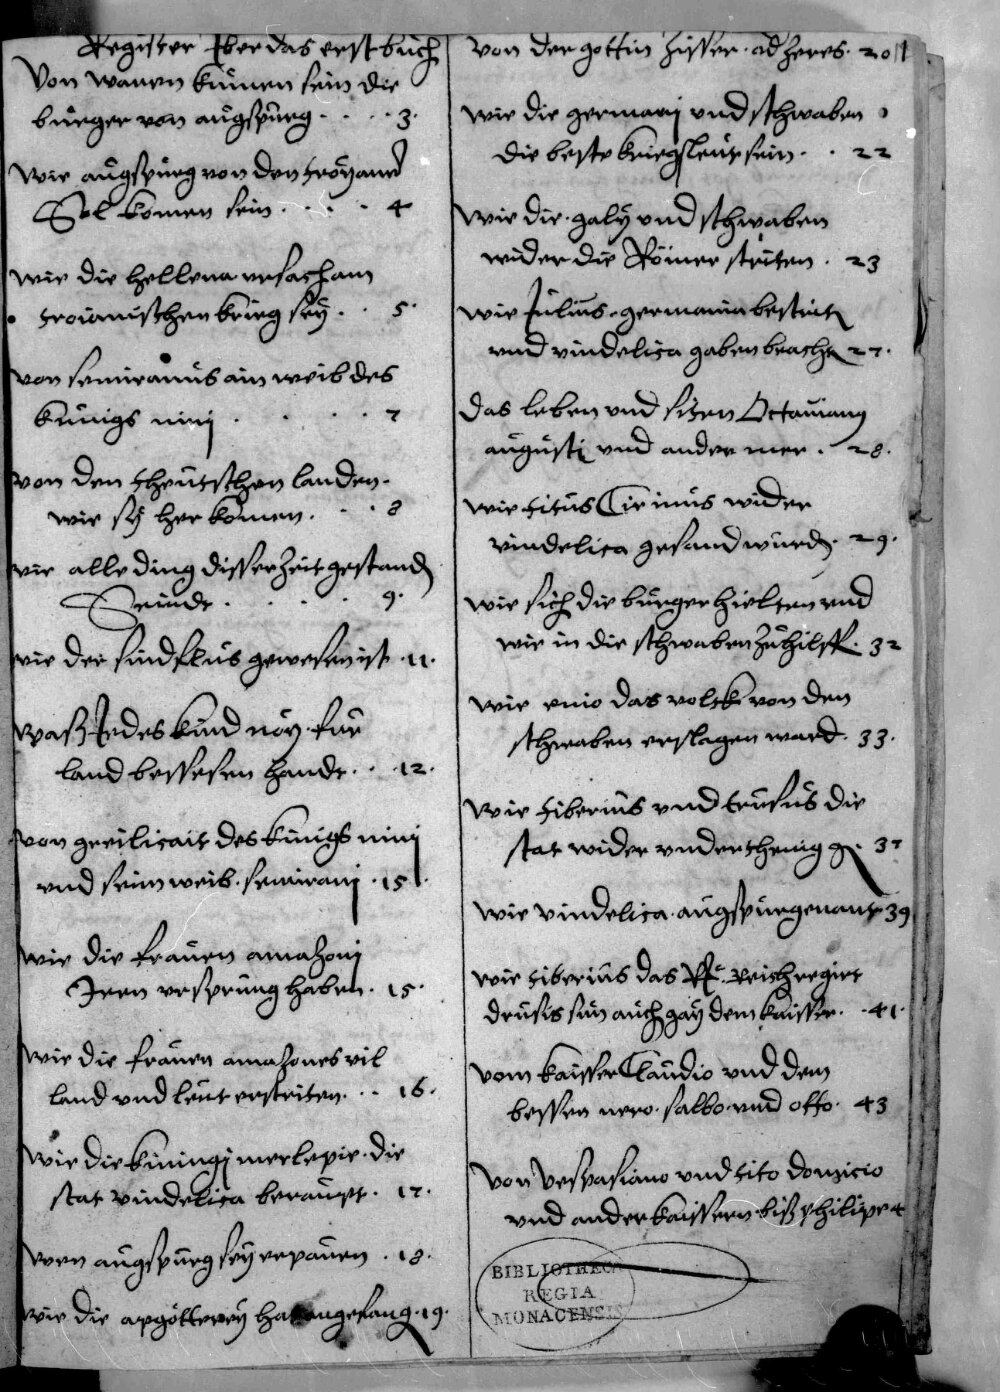 Register Iber das erst buch
Von wanen kumen sein die
burger von augspurg . . . . 3.
Wie augspurg von den troyaner
Sol komen sein . . . . 4
wie die hellena ursach am
troianischen krieg sey . . 5.
von semiramis ain weib des
kunigs nini . . . . 7
von den theutschen landen.
wie sy her komen. . . 8
wie alle ding disser zeit gestanden
Seindt . . . . 9.
wie der sindflus gewesen ist . 11.
Waß Jedes kind noy. fur
land bessesen handt. . . 12.
von greilicait des kunigs nini
und seim weib. semirami . 15.
wie die frauen amazoni
Iren ursprung haben. 15.
wie die frauen amazones vil
land und leut erstriten. . . 16.
wie die kiningi merlepie. die
stat vindelica beraupt. 17.
wen augspurg sey erpauen . 18.
wie die apgötterey hat angefang. 19.
von der gottin zisser. ad zeres. 20
wie die germani und schwaben
die beste kriegsleut sein. . 22
wie die. galy und schwaben
wider die Römer striten . 23
wie Julius. germania bestrit
und vindelica gaben bracht 27.
Das leben und sizen Octaviany
augusti und ander mer . 28.
wie titus Cirinus wider
vindelica gesand wurd. 29.
wie sich die burger hielten und
wie in die schwaben zu hilff. 32
wie vnio das volck von den
schwaben erslagen ward. 33.
wie tiberius und trusus die
stat wider underthenig g. 37
wie vindelica. augspur genant 39
wie tiberius das R. reich regirt
drusis sun auch gay dem kaisser. . 41.
vom kaisser Claudio und dem
bessen nero. salbo. und otto. 43
Von Vespasiano und tito domicio
und ander kaissern. biß philipe 4
BIBLIOTHECA
REGIA
MONACENSIS